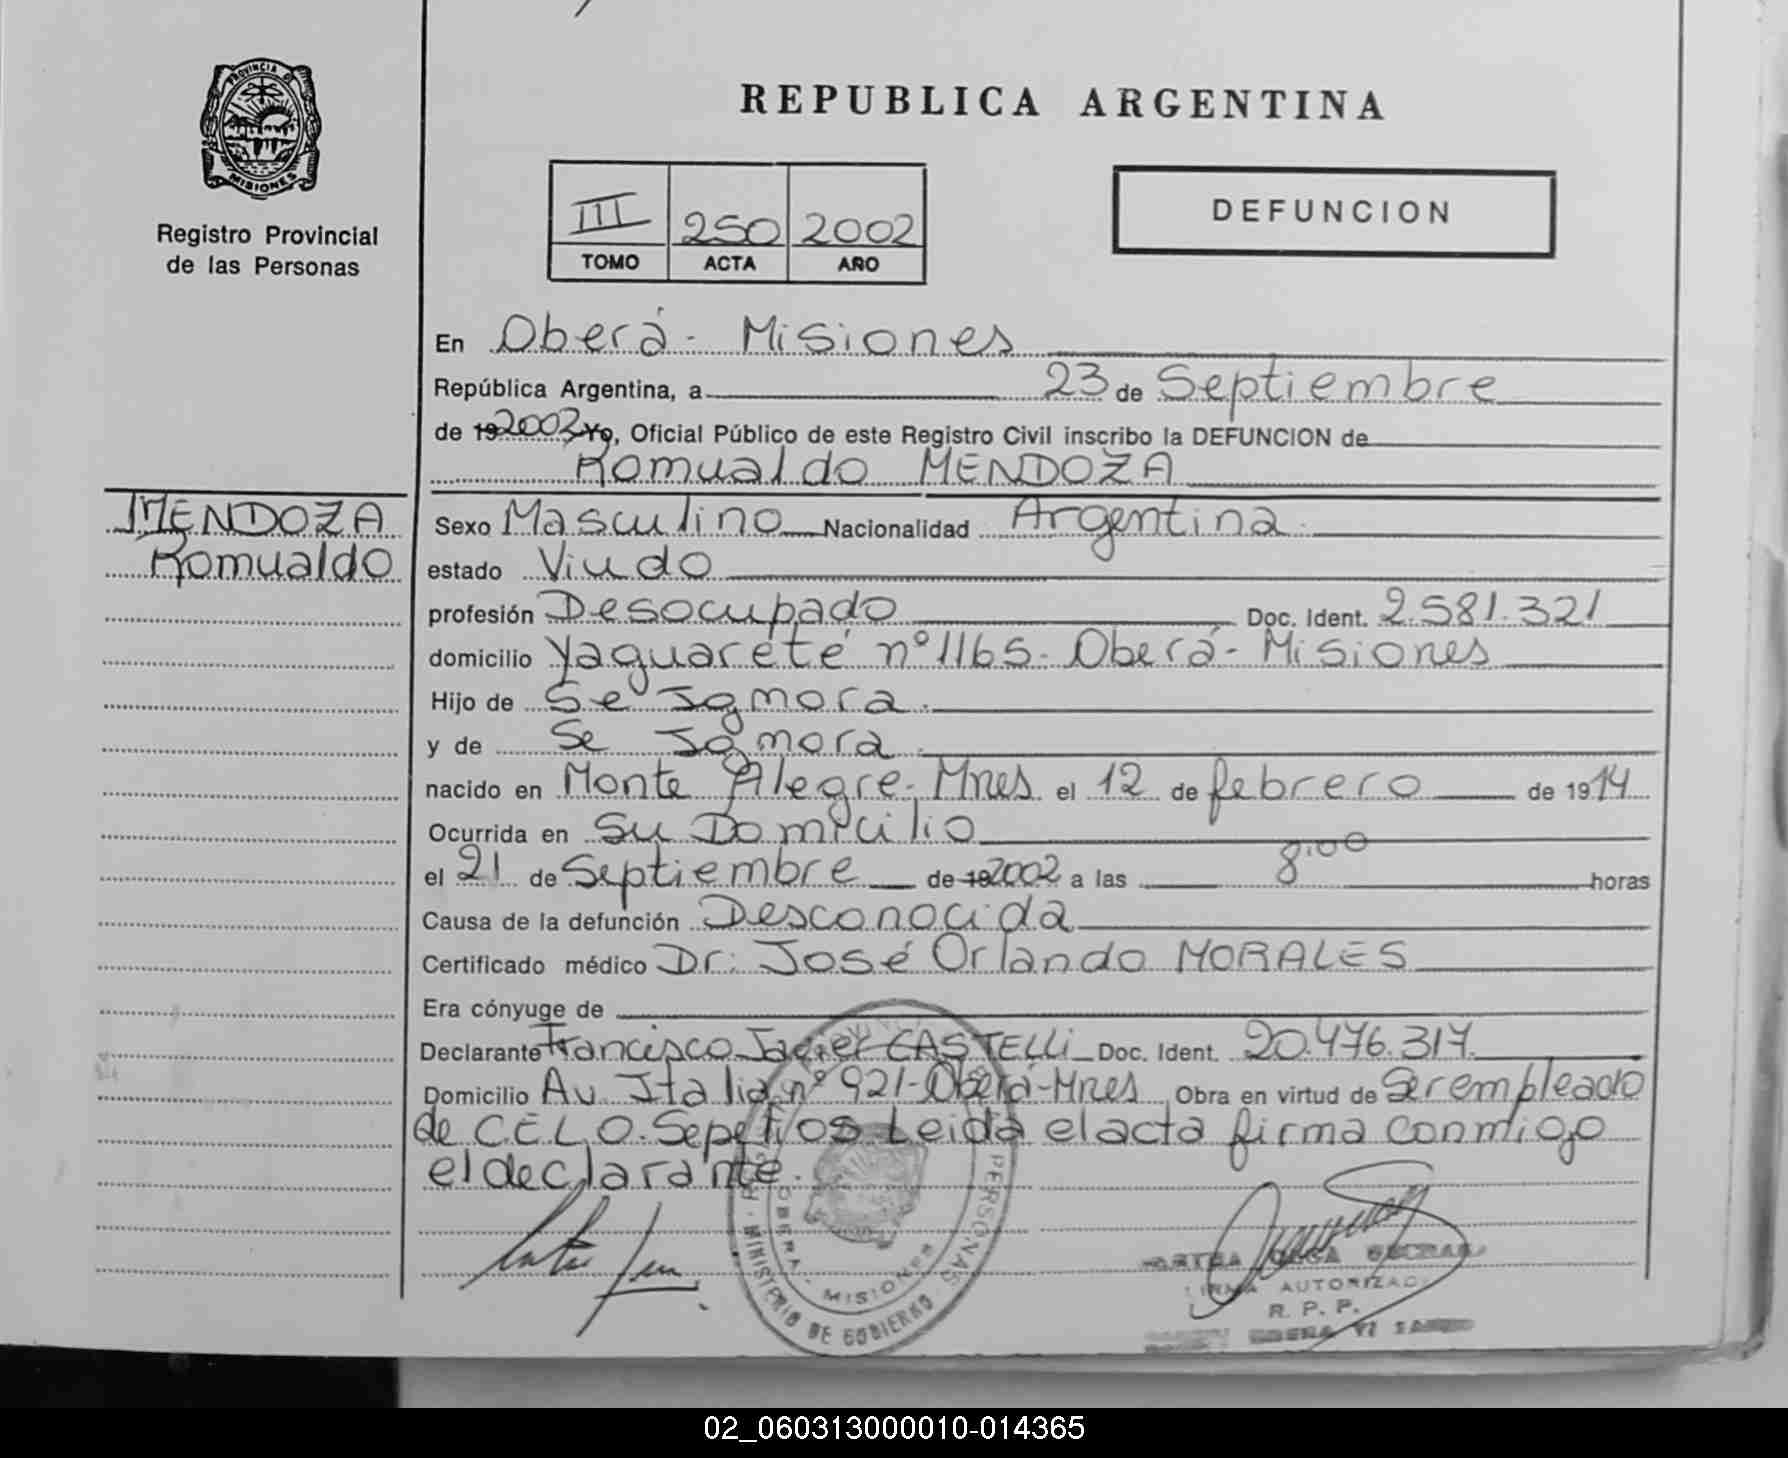 PROVINCIA DE
MISIONES
Registro Provincial
de las Personas
REPUBLICA ARGENTINA
III 250 2002
TOMO ACTA AÑO
DEFUNCION
En Oberá - Misiones
República Argentina, a 23 de Septiembre
de 19 2002 Yo, Oficial Público de este Registro Civil inscribo la DEFUNCION de
Romualdo MENDOZA
MENDOZA
Romualdo
Sexo Masculino Nacionalidad Argentina.
estado Viudo
profesión Desocupado Doc. Ident. 2.581.321
domicilio Yaguareté nº 1165. Oberá - Misiones
Hijo de Se Ignora.
y de Se Ignora.
nacido en Monte Alegre - Mnes el 12 de febrero de 1914
Ocurrida en Su Domicilio
el 21 de Septiembre de 19 2002 a las 8:00 horas
Causa de la defunción Desconocida
Certificado médico Dr: José Orlando MORALES
Era cónyuge de
Declarante Francisco Javier CASTELLi Doc. Ident. 20.476.317
Domicilio Av. Italia nº 921 - Oberá - Mnes Obra en virtud de Ser empleado
de C.E.L.O. Sepelios. Leida el acta firma conmigo
el declarante.
PERSONAS
OBERA - MISIONES
MINISTERIO DE GOBIERNO
OLGA
FIRMA AUTORIZADA
R. P. P.
02_060313000010-014365